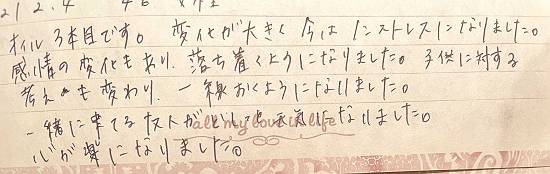 21.2.4
オイル3本目です。 変化が大きく今はノンストレスになりました。
感情の変化もあり、落ち着くようになりました。子供に対する
考えも変わり、一線おくようになりました。
一緒に来てる 元気になりました。
all my love in life
心が楽になりました。